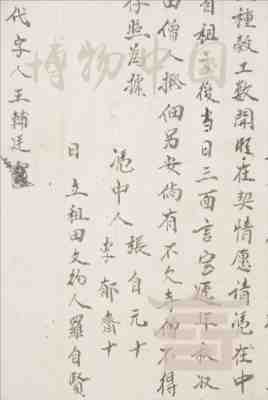 種穀工數開明在契情愿請憑在中
租字後當日三面言定
田僧人撥佃另安倘有不欠者佃不得
存照為據
憑中人 張自元十
李郁齋十
日立租田文約人羅自賢
代字人王輔廷
博物中国